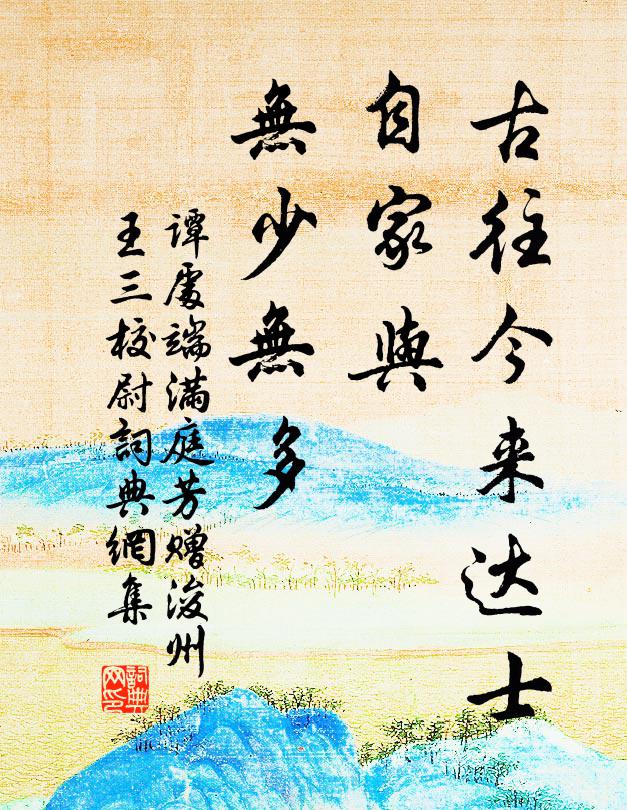 古往今来达士
自家與
無少無多
谭處端满庭芳赠浚州
王三校尉詞典網集
詞典
网印